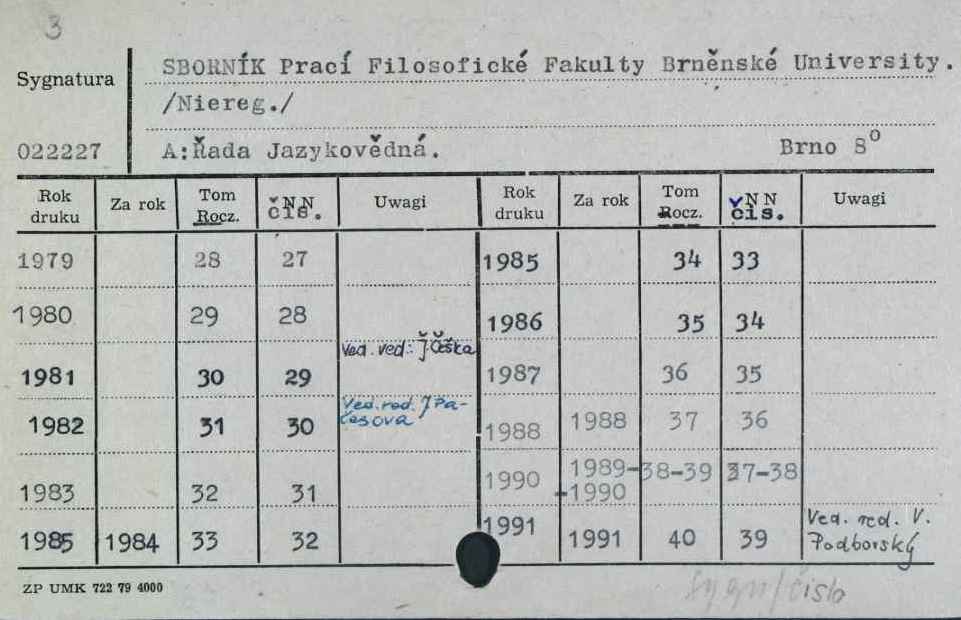 3
Sygnatura
022227
SBORNÍK Prací Filosofické Fakulty Brněnské University.
/Niereg./
A:Řada Jazykovědná. Brno 8°
Rok druku Za rok Tom Rocz. NN čís. Uwagi Rok druku Za rok Tom Rocz. NN čís. Uwagi
1979 28 27 1985 34 33
1980 29 28 1986 35 34
1981 30 29 Ved. ved.: J. Češka 1987 36 35
1982 31 30 Ved. red. J Pa-
česova 1988 1988 37 36
1983 32 31 1990 1989-
-1990 38-39 37-38
1985 1984 33 32 1991 1991 40 39 Ved. red. V.
Podborský
ZP UMK 722 79 4000
sygn/čislo